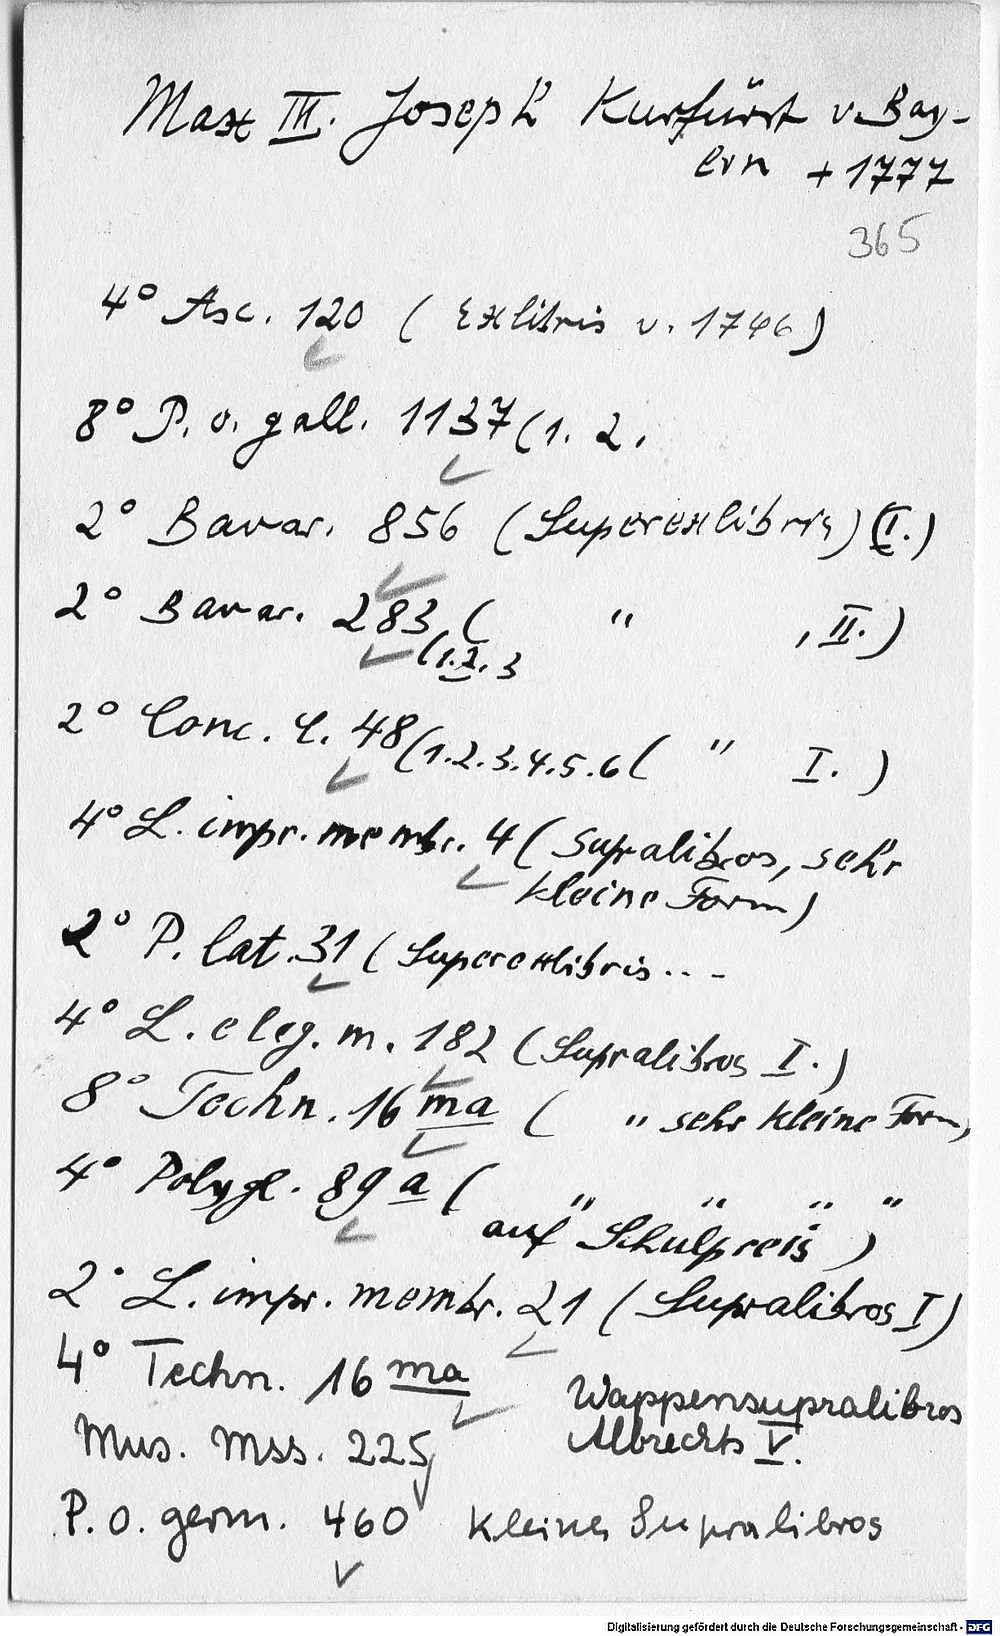 Max III. Joseph Kurfürst v. Bay-
ern + 1777
365
4° Asc. 120 ( Exlibris v. 1746)
8° P. o. gall. 1137(1. 2.
2° Bavar. 856 (Superexlibris) (I.)
2° Bavar. 283 ( " , II.)
(1.2.3
2° Conc. 48(1.2.3.4.5.6( " I. )
4° L. impr. membr. 4 (Supralibros, sehr
kleine Form)
2° P. lat. 31 (Superexlibris...
4° L. eleg. m. 182 (Supralibros I.)
8° Techn. 16 ma ( " sehr kleine Form,
4° Polygl. 89 a ( " " " "
auf Schulpreis )
2° L. impr. membr. 21 (Supralibros I)
4° Techn. 16 ma
Wappensupralibros
Albrechts V.
Mus. Mss. 225
P. o. germ. 460 kleines Supralibros
Digitalisierung gefördert durch die Deutsche Forschungsgemeinschaft - DFG